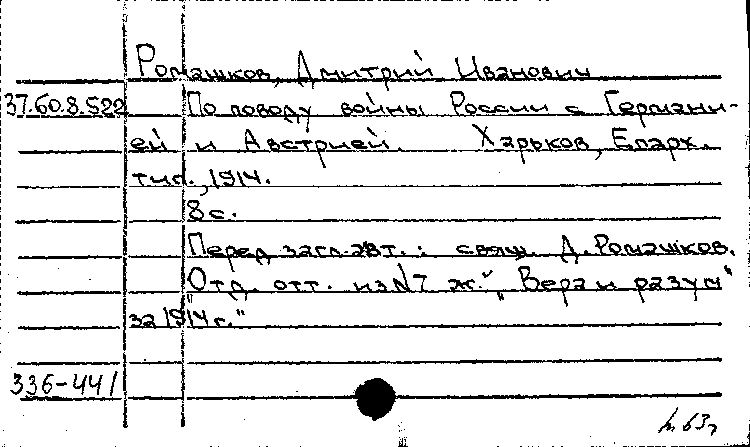 Ромашков, Дмитрий Иванович
37.60.8.522 По поводу войны России с Германи-
ей и Австрией. Харьков, Епарх.
тип., 1914.
8 с.
Перед загл. авт.: свящ. Д. Ромашков.
Отд. отт. из №7 ж. "„Вера и разум“
за 1914 г."
336-441